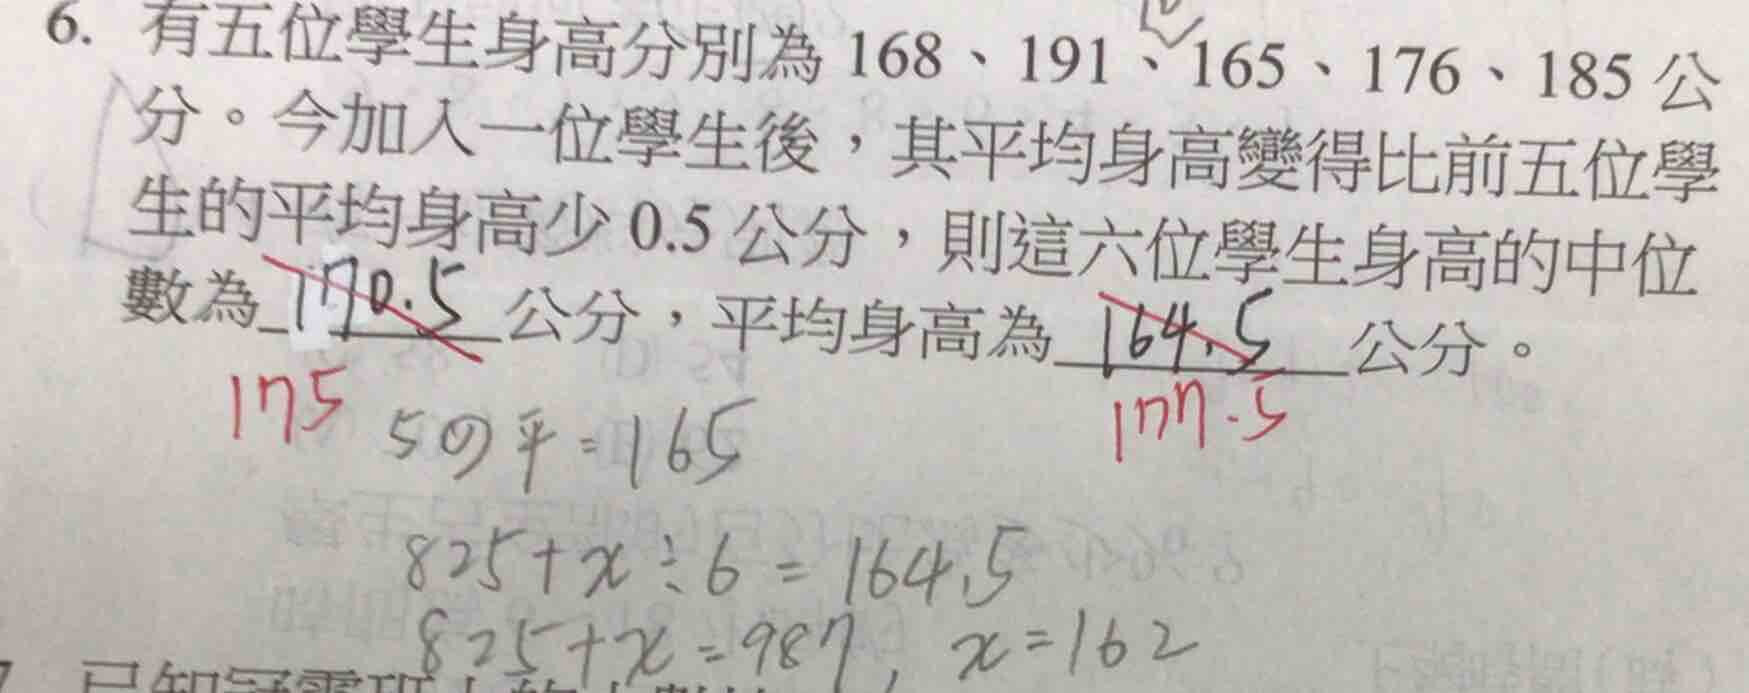 6. 有五位學生身高分別為 168、191、165、176、185 公
分。今加入一位學生後，其平均身高變得比前五位學
生的平均身高少 0.5 公分，則這六位學生身高的中位
數為 170.5 公分，平均身高為 164.5 公分。
175 177.5
5の平=165
825+x÷6=164.5
825+x=987, x=162